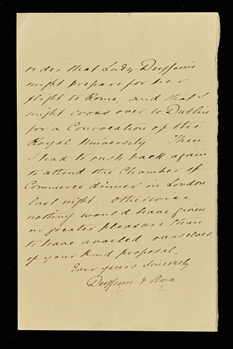 order that Lady Dufferin
might prepare for her
flight to Rome, and that I
might cross over to Dublin
for a Convocation of the
Royal University. Then
I had to rush back again
to attend the Chamber of
Commerce dinner in London
last night. Otherwise
nothing would have given
us greater pleasure than
to have availed ourselves
of your kind proposal.
Ever yours sincerely
Dufferin & Ava